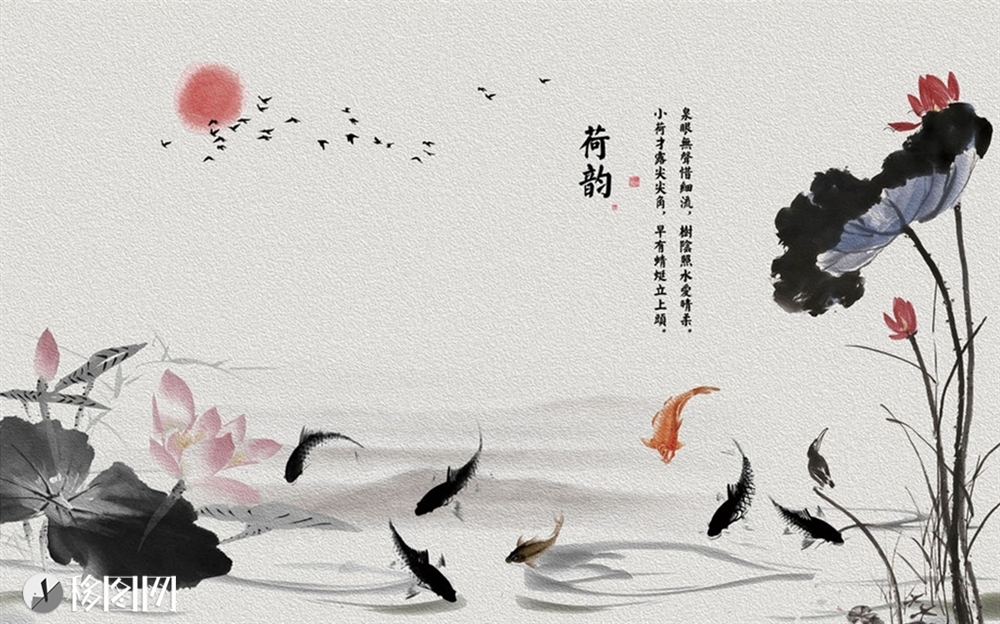 泉眼無聲惜細流，樹陰照水愛晴柔。
小荷才露尖尖角，早有蜻蜓立上頭。
荷韵
移图网